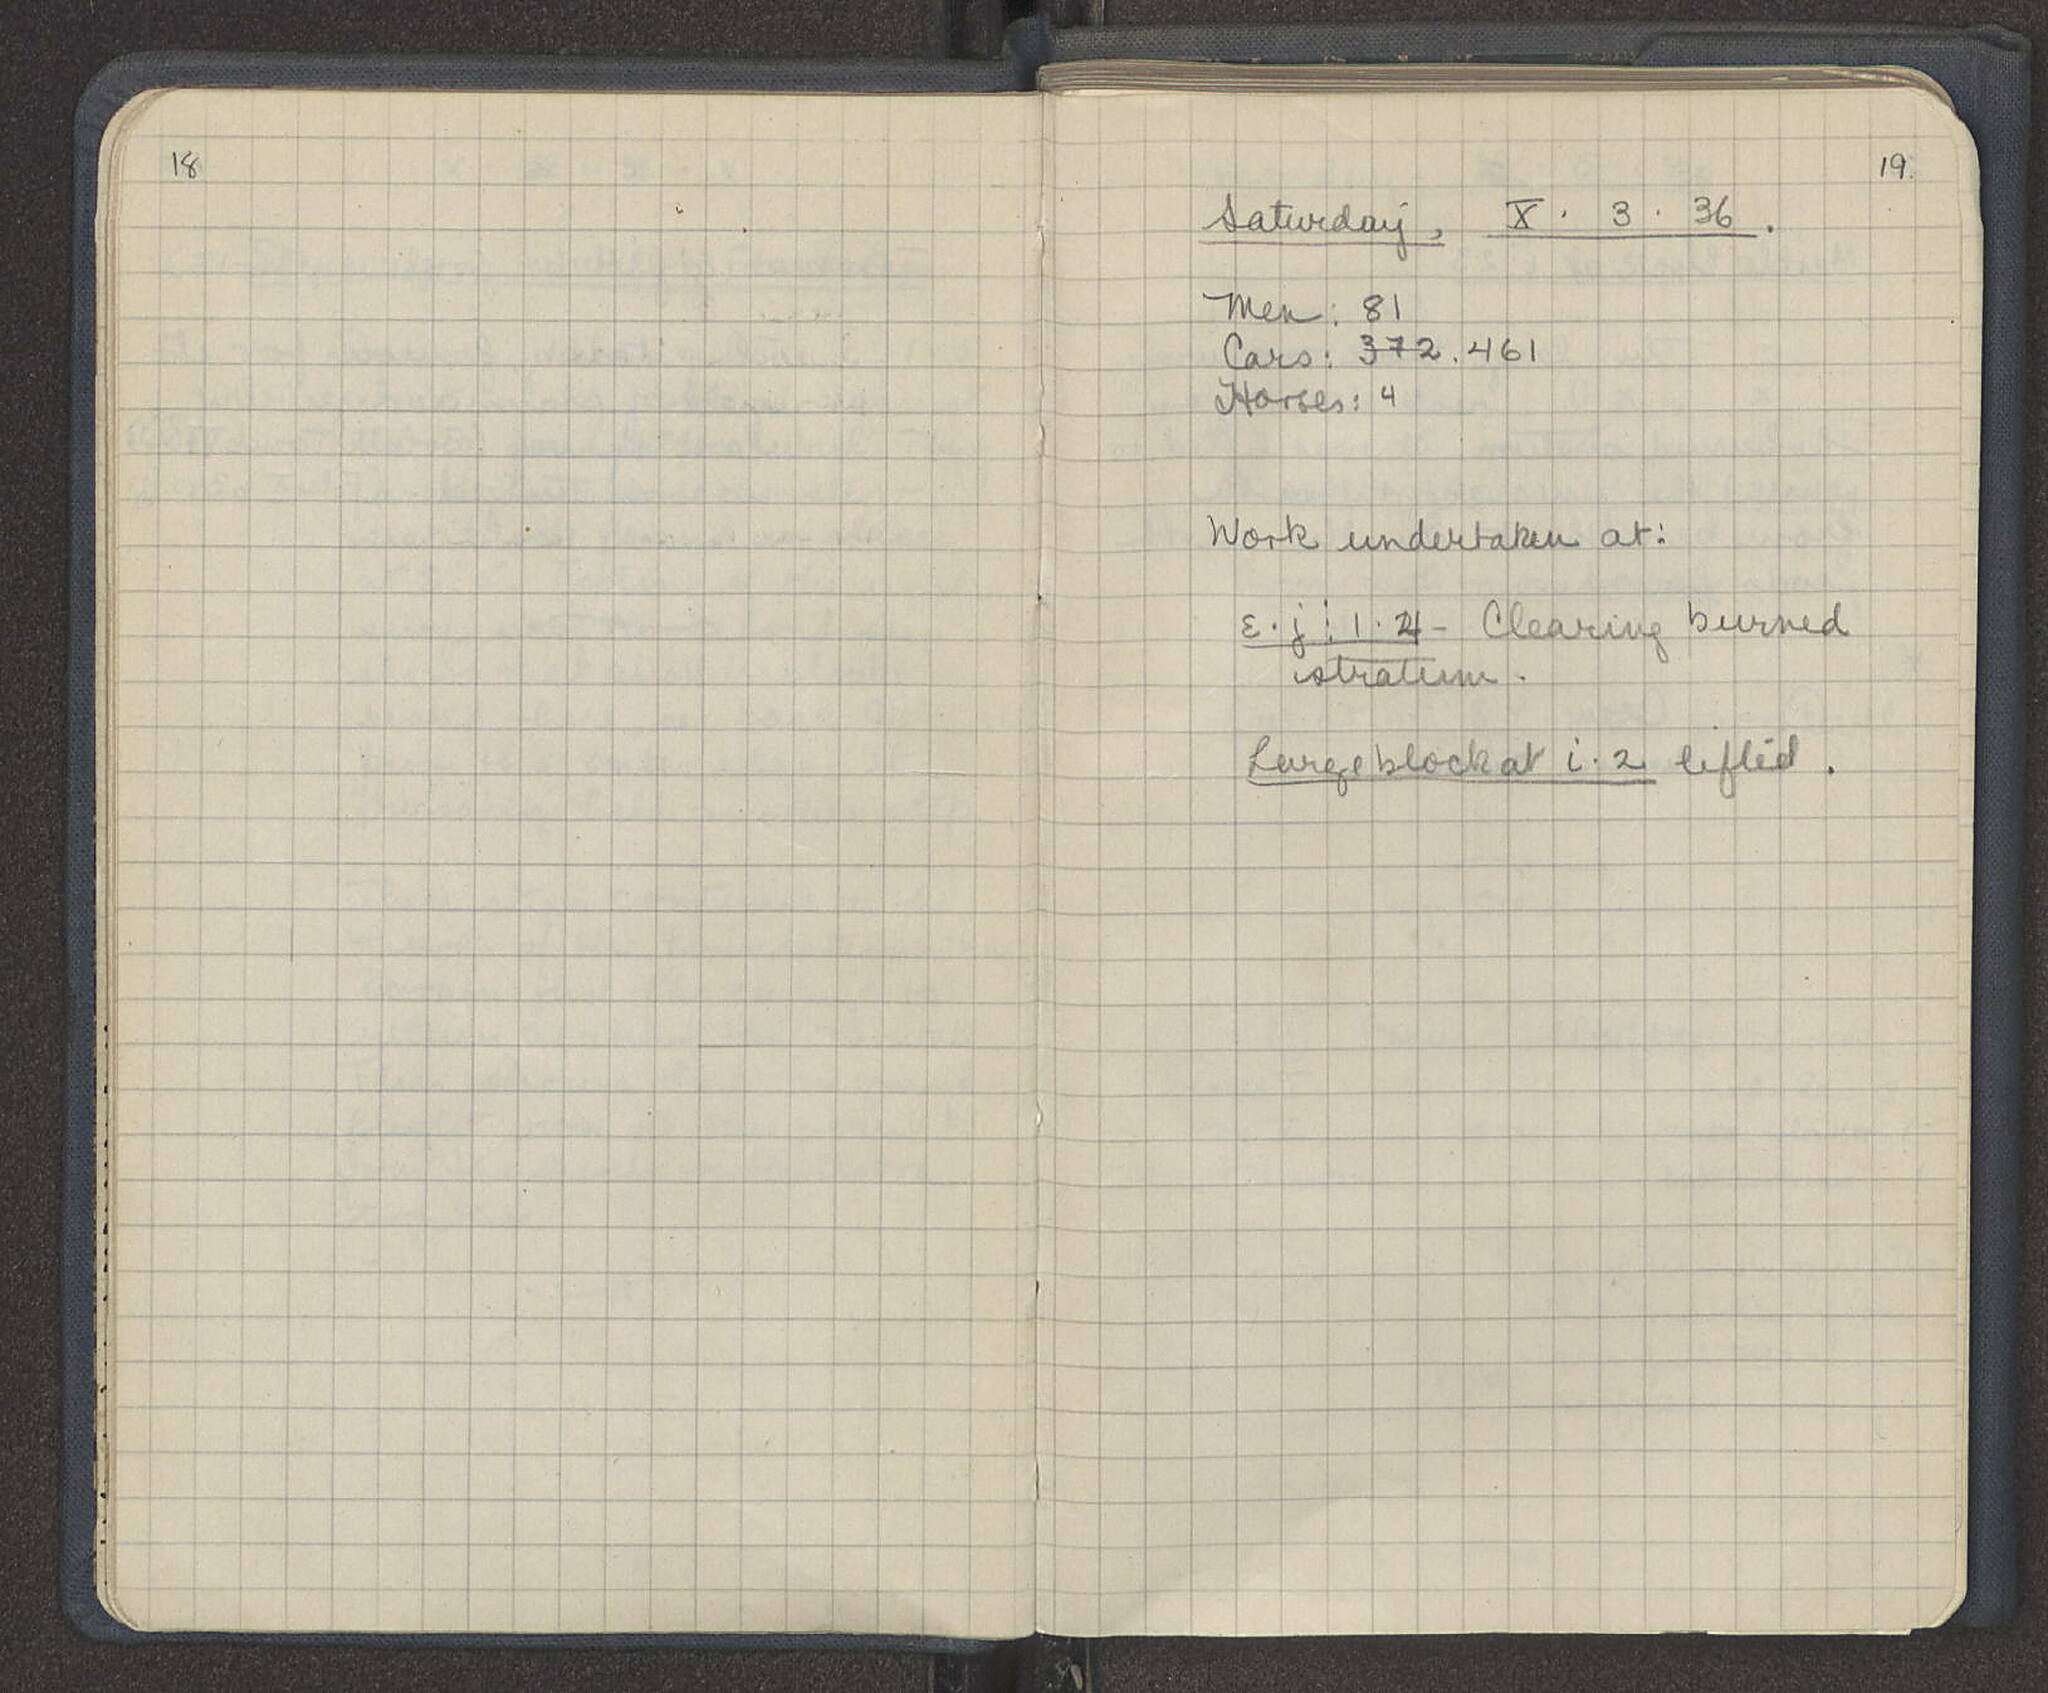 18
19.
Saturday, X. 3. 36.
Men: 81
Cars: 372. 461
Horses: 4
Work undertaken at:
ε. j: 1. 24 - Clearing burned
stratum.
Large block at i. 2 lifted.